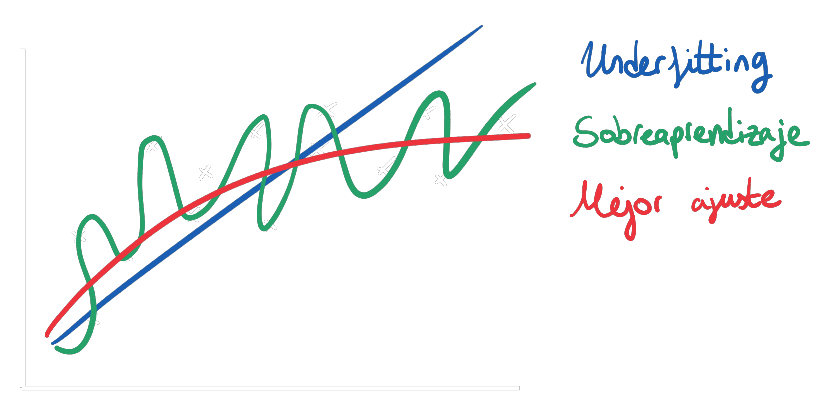 Underfitting
Sobreaprendizaje
Mejor ajuste